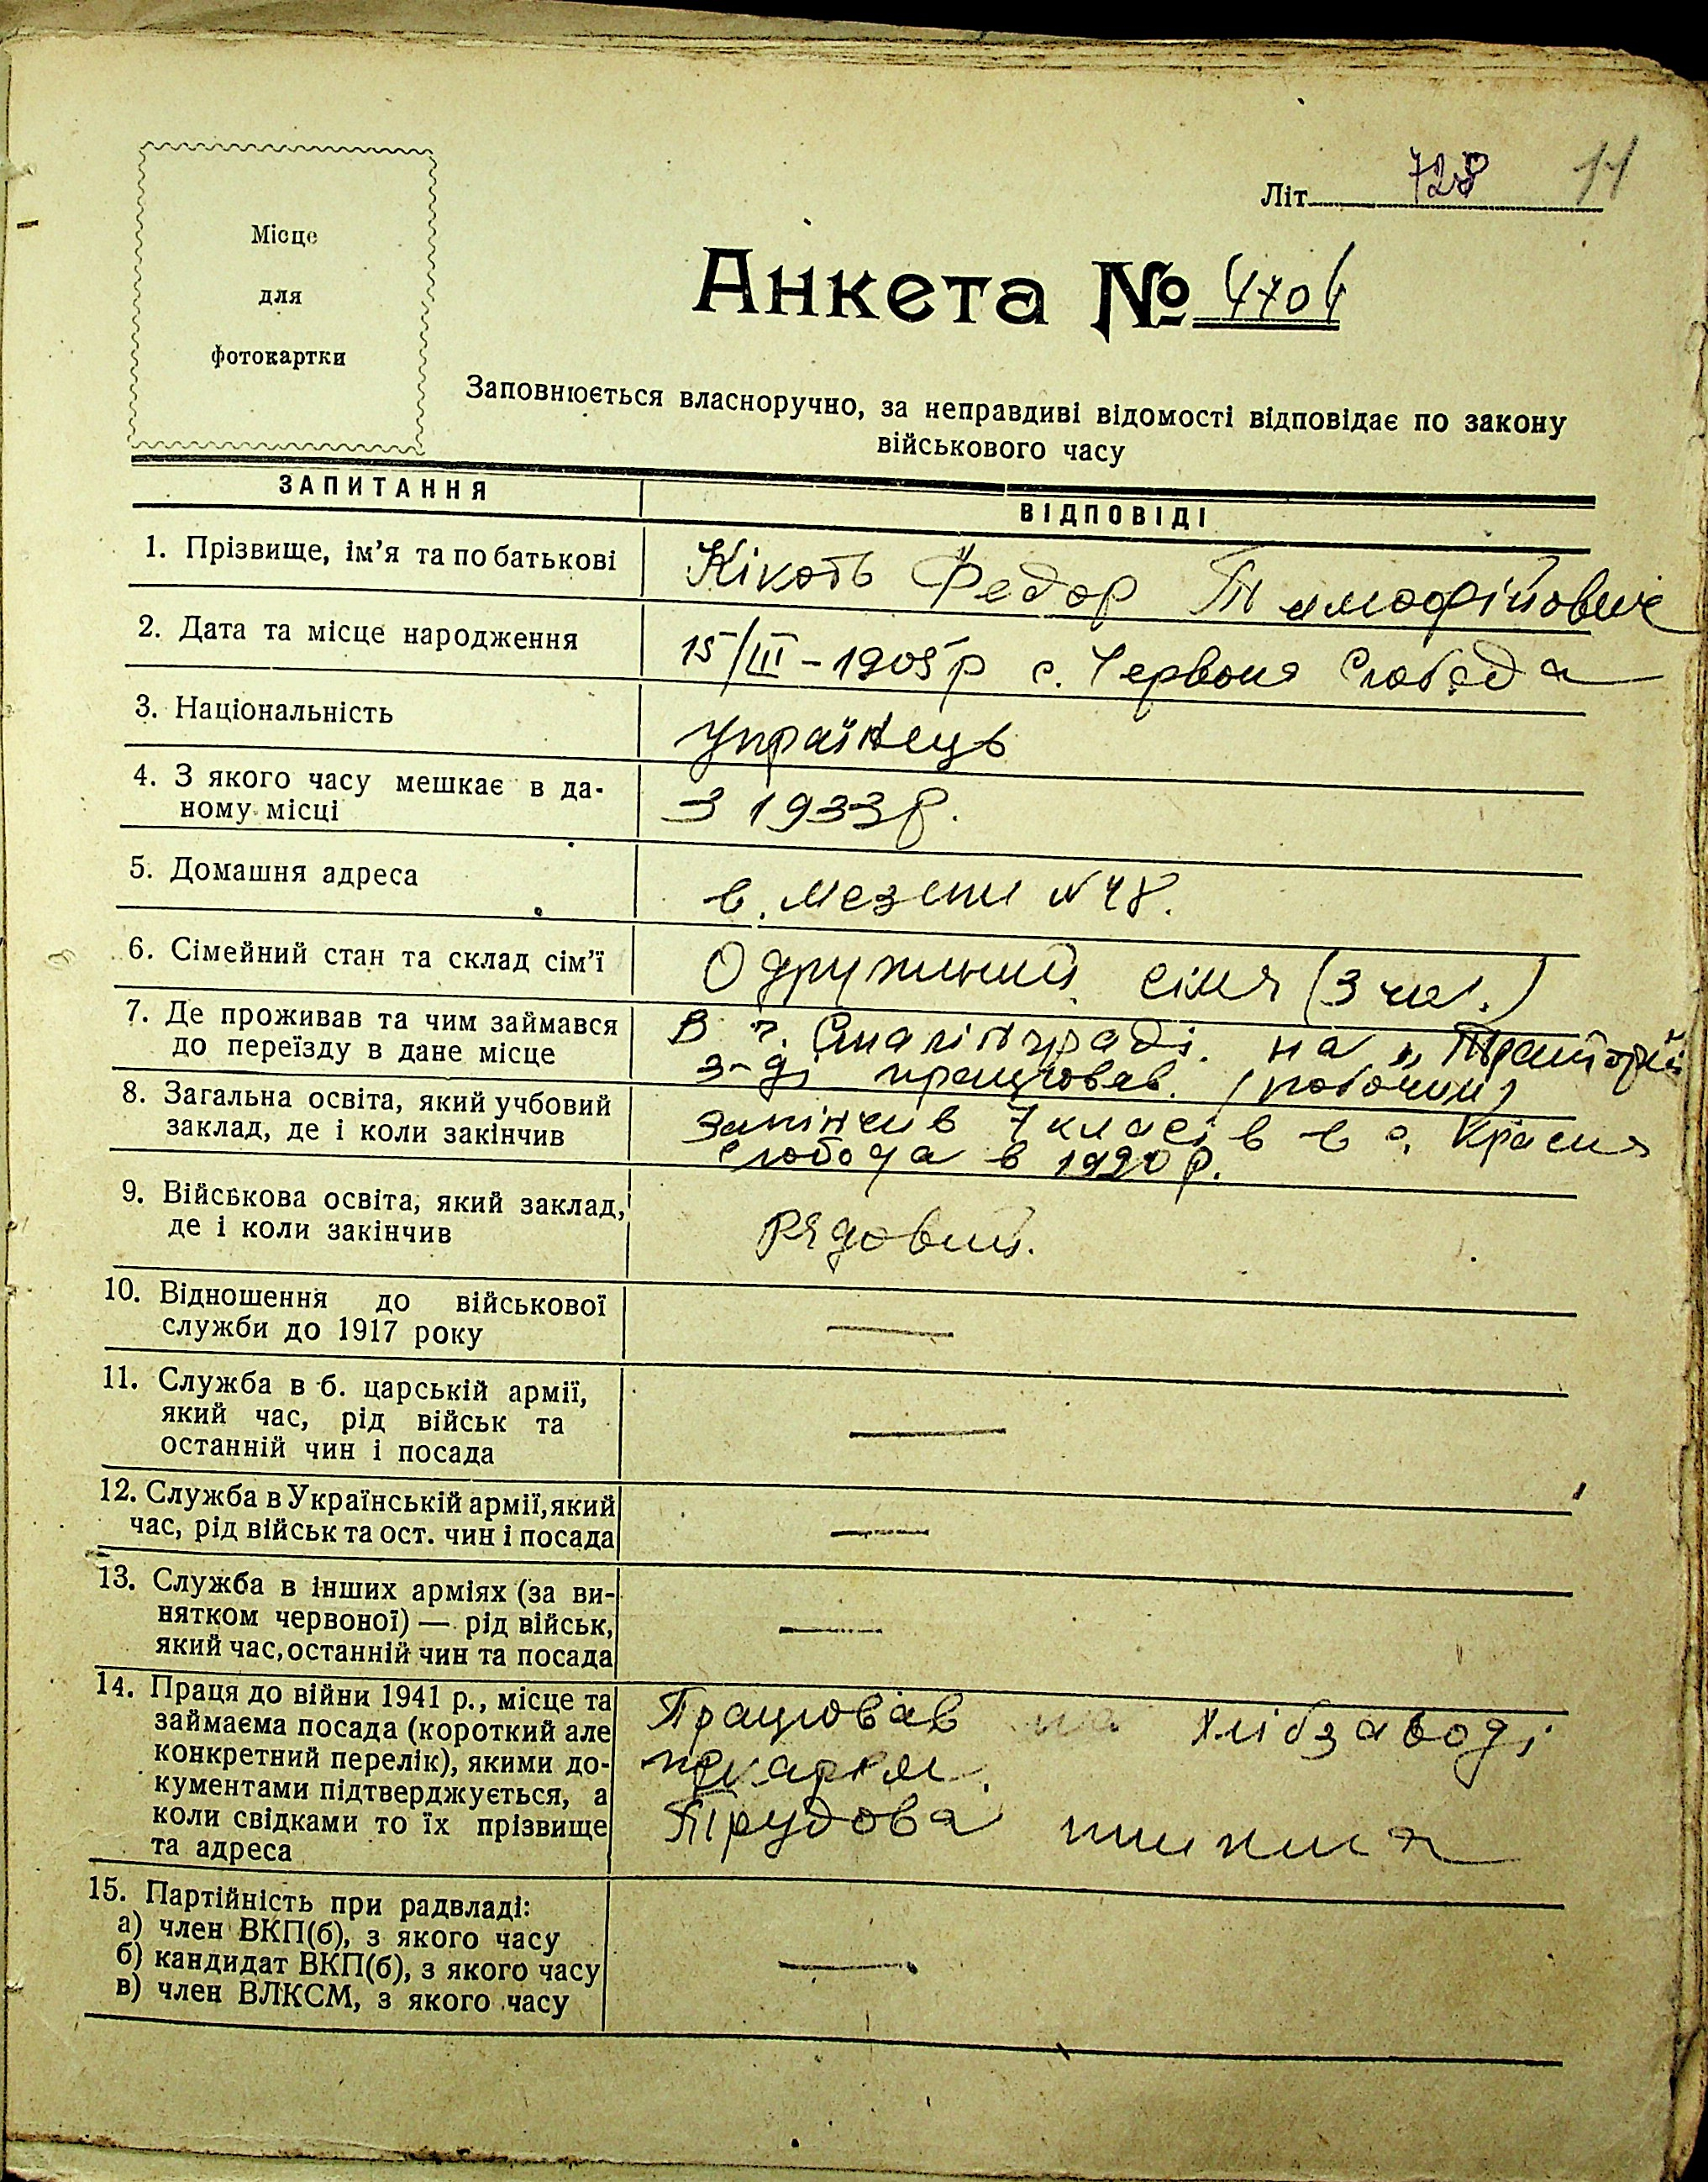 Літ. 728 11
Місце
для
фотокартки
Анкета № 4704
Заповнюється власноручно, за неправдиві відомості відповідає по закону
військового часу
ЗАПИТАННЯ
ВІДПОВІДІ
1. Прізвище, ім'я та по батькові
Кікоть Федор Тимофійович
2. Дата та місце народження
15/III-1905р с. Червоня Слобода
3. Національність
Українець
4. З якого часу мешкає в да-
ному місці
З 1933 р.
5. Домашня адреса
в. Мезени № 48.
6. Сімейний стан та склад сім'ї
Одружиний сімя (3 чол.)
7. Де проживав та чим займався
до переїзду в дане місце
В г. Сталінграді. на „Тракторнії
з-ді працював. (рабочим)
8. Загальна освіта, який учбовий
заклад, де і коли закінчив
Закінчив 7 класів в с. Красня
слобода в 1920 р.
9. Військова освіта, який заклад,
де і коли закінчив
Рядовий.
10. Відношення до військової
служби до 1917 року
—
11. Служба в б. царській армії,
який час, рід військ та
останній чин і посада
—
12. Служба в Українській армії, який
час, рід військ та ост. чин і посада
—
13. Служба в інших арміях (за ви-
нятком червоної) — рід військ,
який час, останній чин та посада
—
14. Праця до війни 1941 р., місце та
займаєма посада (короткий але
конкретний перелік), якими до-
кументами підтверджується, а
коли свідками то їх прізвище
та адреса
Працював на хлібзаводі
пекарем.
Трудова книжка
15. Партійність при радвладі:
а) член ВКП(б), з якого часу
б) кандидат ВКП(б), з якого часу
в) член ВЛКСМ, з якого часу
—